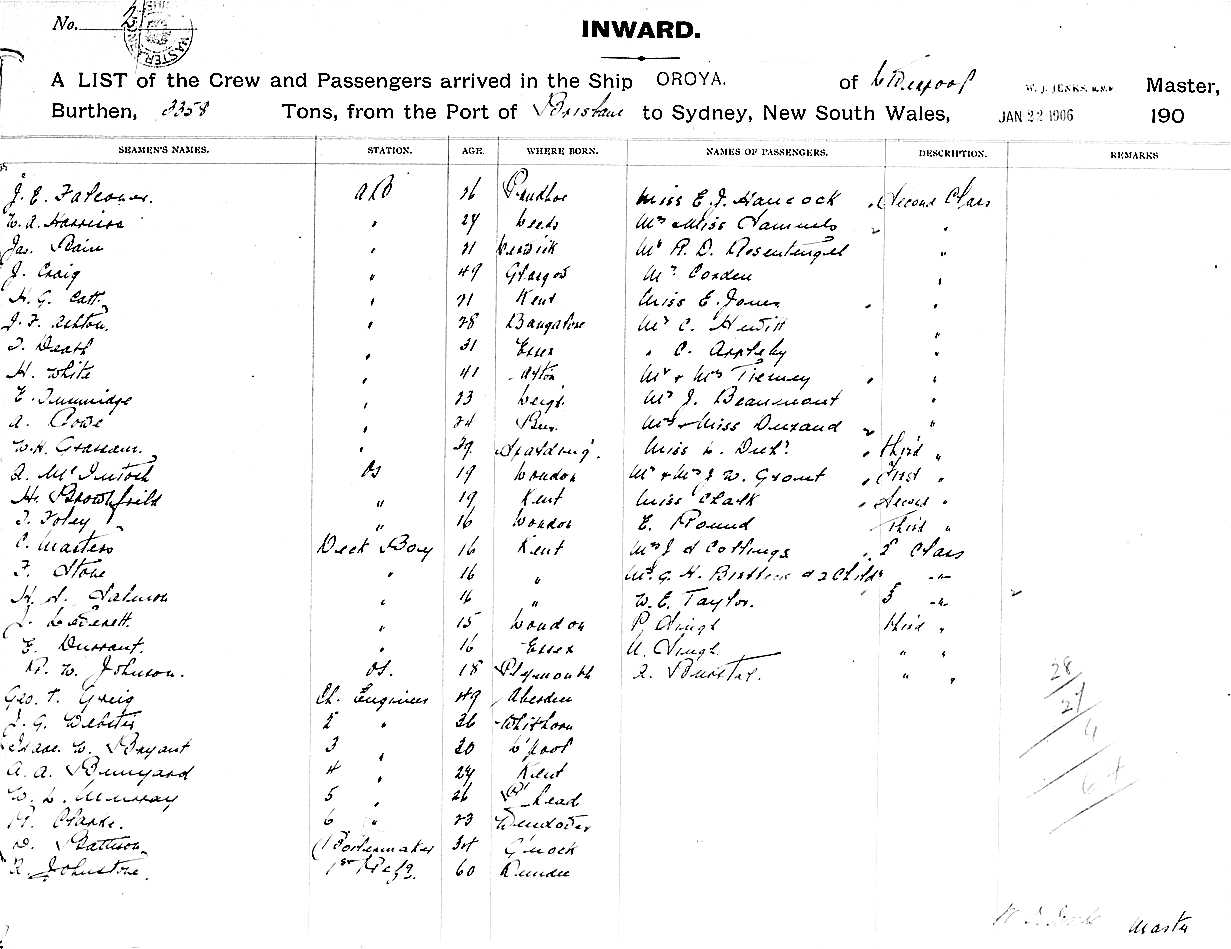 No. 2
INWARD.
A LIST of the Crew and Passengers arrived in the Ship OROYA. of L'Pool W. J. JENKS. R.N.R Master,
Burthen, 3358 Tons, from the Port of Brisbane to Sydney, New South Wales, JAN 22 1906 190
SEAMEN'S NAMES. STATION. AGE. WHERE BORN. NAMES OF PASSENGERS. DESCRIPTION. REMARKS
J. E. Falconer. AB 26 Prudhoe Miss E. J. Hancock Second Class
W. A. Harrison " 24 Leeds Mrs & Miss Samuels "
Jas. Rain " 21 Berwick Mr R. D. Rosentengel "
J. Craig " 49 Glasgow Mr. Corden "
H. G. Catt. " 21 Kent Miss E. Jones "
J. F. Ashton. " 28 Bangalore Mr C. Hewitt "
T. Death " 31 Essex " C. Appleby "
H. White " 41 Mr & Mrs Tierney "
E. " 23 Leigh Mr J. Beaumont "
A. Rowe " 24 Mrs & Miss Durand "
W. H. " 29 Spalding. Miss L. Third "
A. McIntosh OS 19 London Mr & Mrs J. W. Grout First "
H. Brownfield " 19 Kent Miss Clark Second "
T. Foley " 16 London E. Round Third "
C. Masters Deck Boy 16 Kent Mrs J & Collings 2 Class
F. Stone " 16 " Mrs. G. H. & 2 Childn "
H. S. Salmon " 16 " W. E. Taylor. 3 "
J. Leverett. " 15 London P. Singh third "
E. Durrant. " 16 Essex U. Singh " "
R. W. Johnson. OS. 18 Plymouth " "
Geo. T. Greig Ch. Engineer 49 Aberdeen
J. G. Webster 2 " 36 Whithorn
Isaac W. Bryant 3 " 30 L'pool
A. A. Bunyard 4 " 24 Kent
W. L. Murray 5 " 26 B'head
R. Clarke. 6 " 23 Wendover
D. Pattison Boilermaker 34 G'nock
R. Johnstone. 1st Refg. 60 Dundee
28
27
4
Master